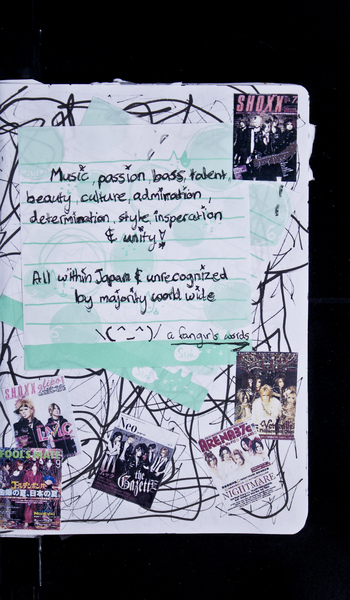 SHOXX
Music, passion, bass, talent,
beauty, culture, admiration,
determination, style, insperation
& unity!
All within Japan & unrecognized
by majority world wide
\(^_^)/ a fangirl's words
SHOXX
Versailles
Neo
the
GazettE
ARENA37℃
NIGHTMARE
FOOL'S MATE
ゴールデンボンバー
の夏、日本の夏。